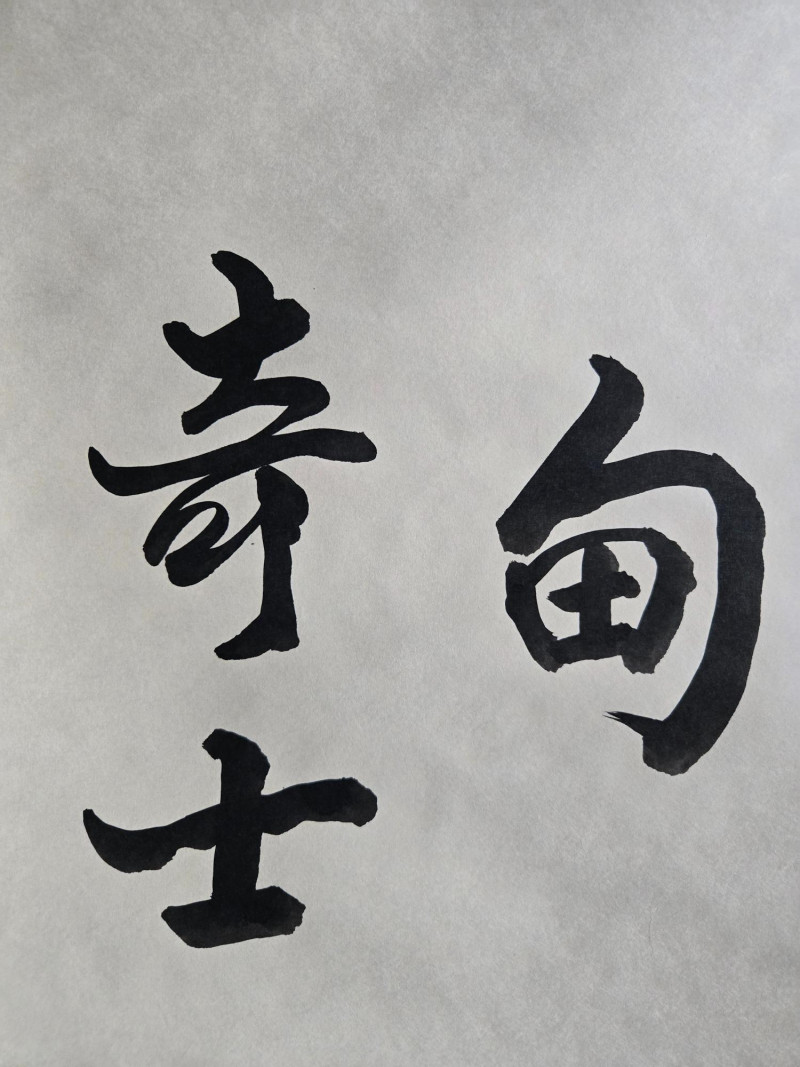 甸
奇士